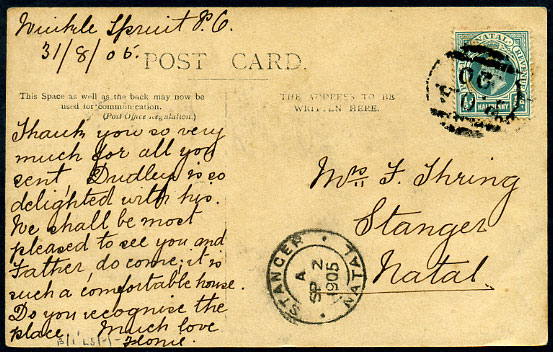 Winkle Spruit P.O.
31/8/05.
POST CARD.
This Space as well as the back may now be
used for communication.
(Post Office Regulation.)
THE ADDRESS TO BE
WRITTEN HERE.
NATAL REVENUE
HALFPENNY
Thank you so very
much for all you
sent, Dudley is so
delighted with his.
We shall be most
pleased to see you and
Father, do come, it is
such a comfortable house.
Do you recognise the
place. Much love
Mrs F. Thring
Stanger
Natal.
STANGER NATAL
A
SP 2
1905